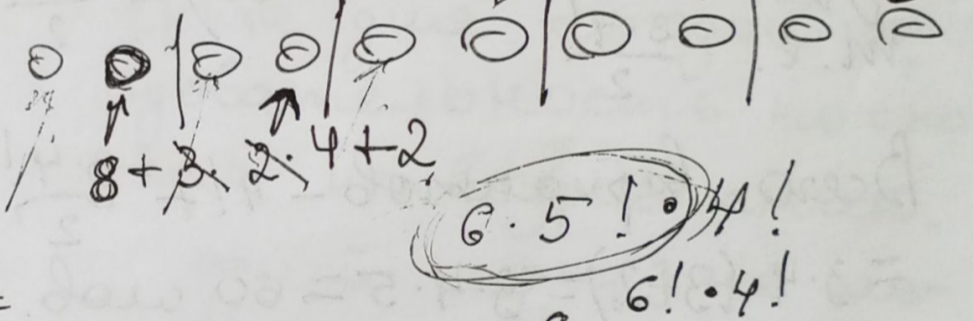 8 + 3 · 2 · 4 + 2
6 · 5 ! · 4 !
6! · 4!